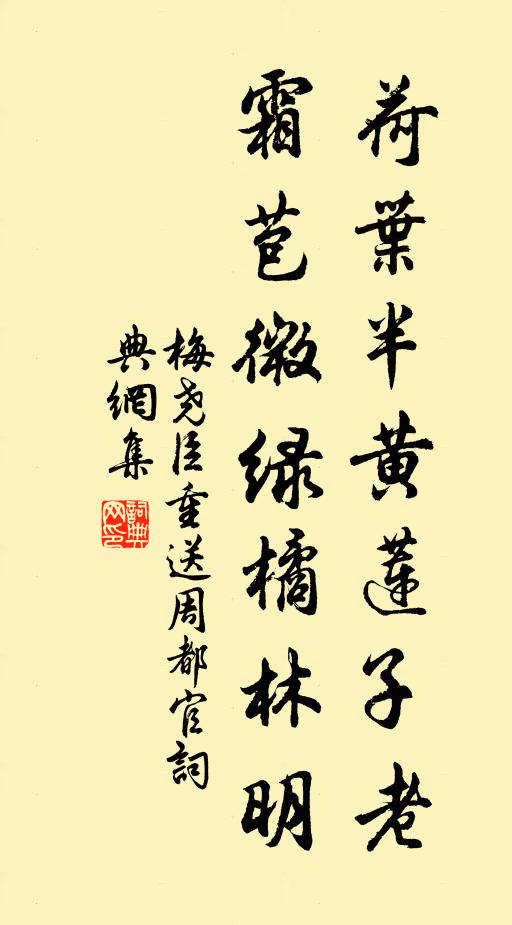 荷葉半黄蓮子老
霜苞微緑橘林明
梅尧臣重送周都官詞
典網集
詞典网印